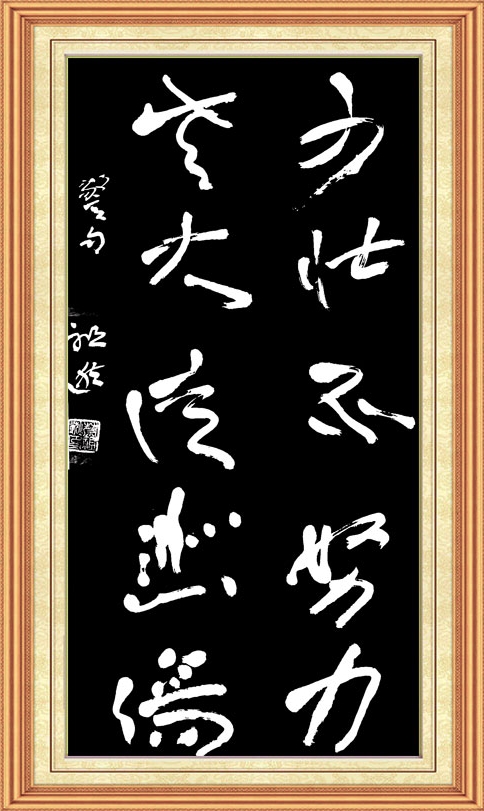 少壮不努力
老大徒悲傷
警句